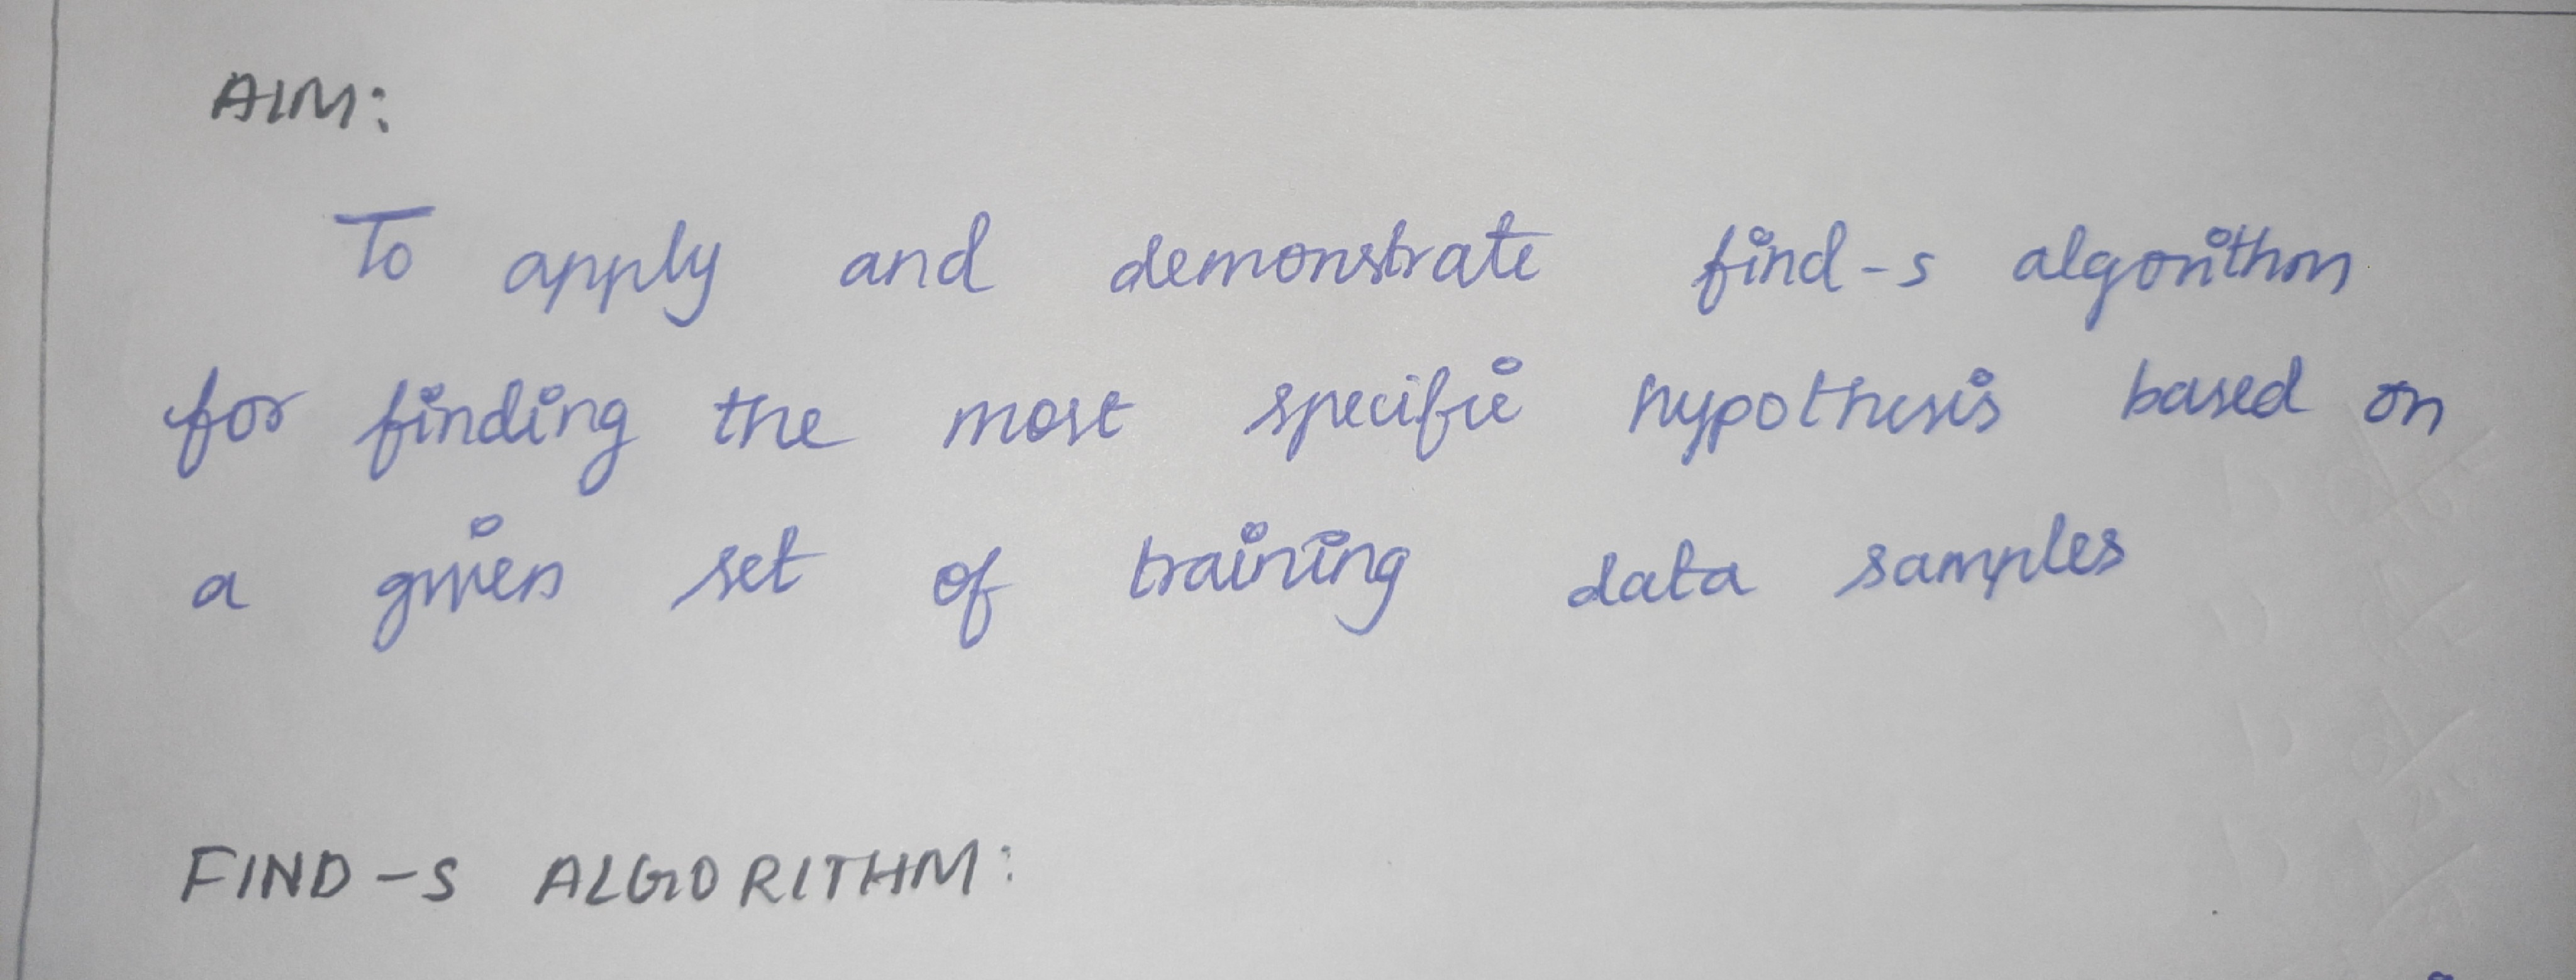 AIM:
To apply and demonstrate find-s algorithm
for finding the most specific hypothesis based on
a given set of training data samples
FIND-S ALGORITHM: